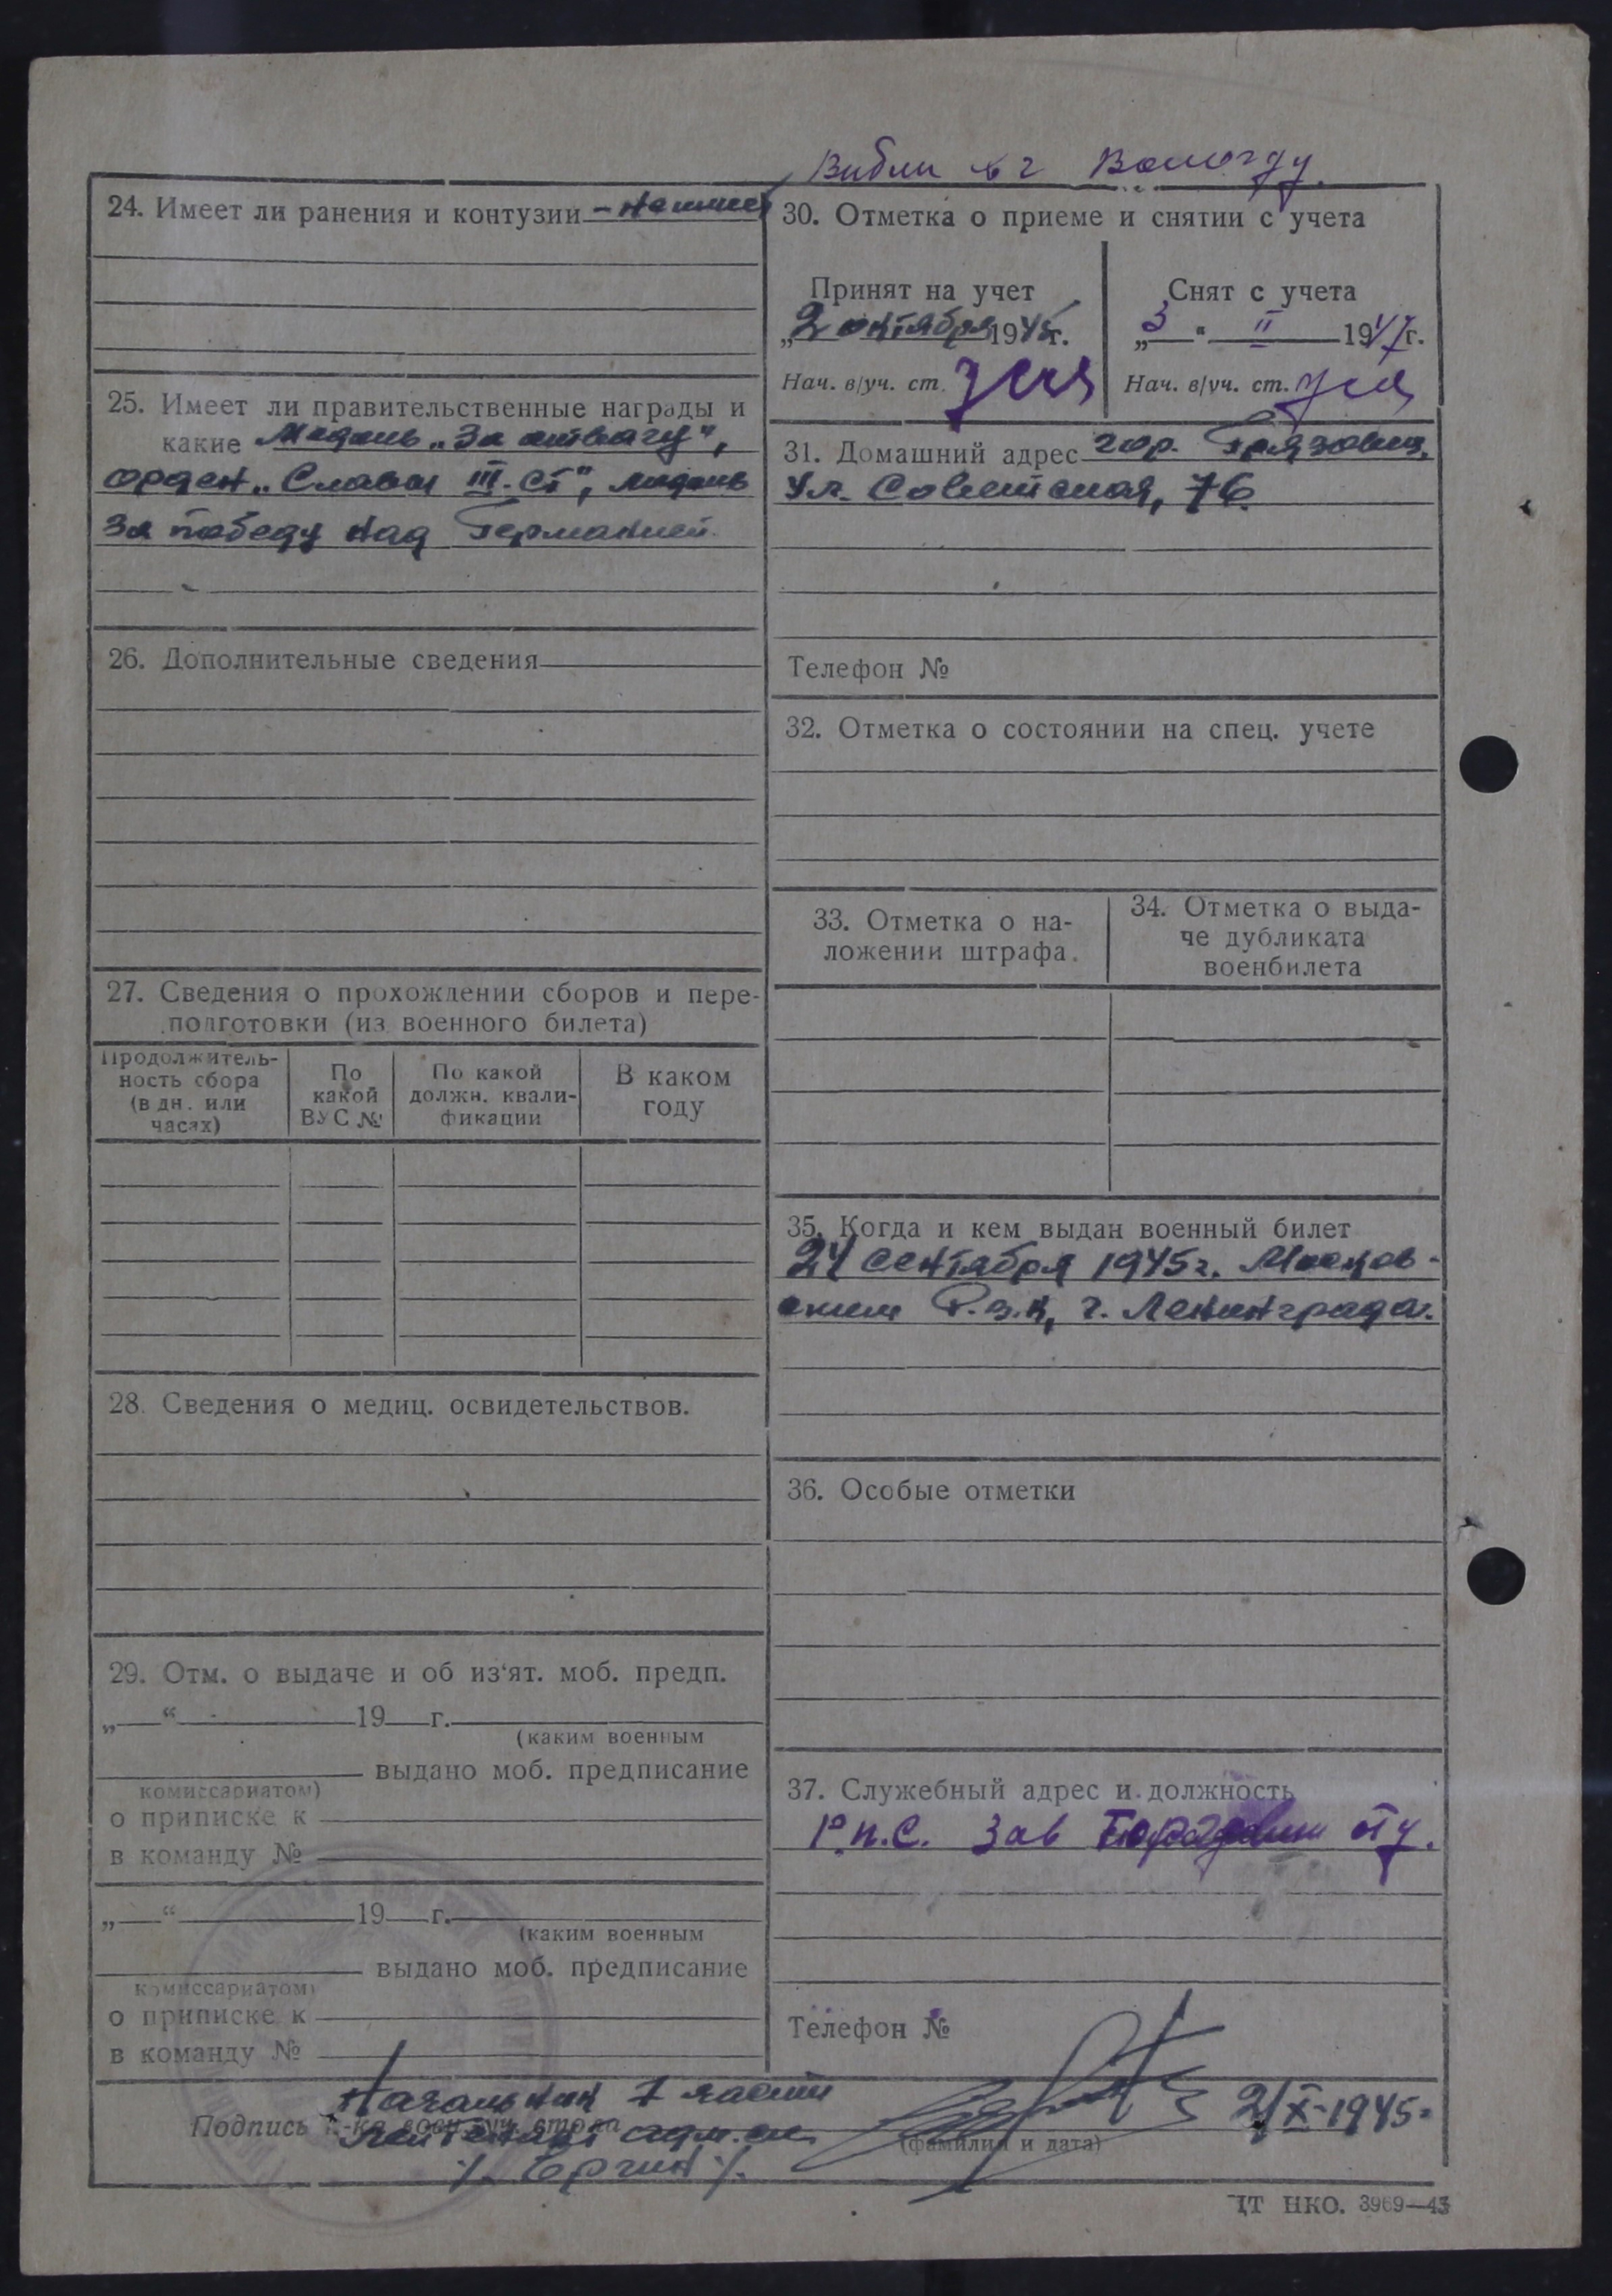 г Вологду.
24. Имеет ли ранения и контузии – не имеет
25. Имеет ли правительственные награды и
какие Медаль „За отвагу“,
орден „Славы III-ст“, медаль
За победу над Германией.
26. Дополнительные сведения
27. Сведения о прохождении сборов и пере-
подготовки (из военного билета)
Продолжитель-
ность сбора
(в дн. или
часах)
По
какой
ВУС №
По какой
должн. квали-
фикации
В каком
году
28. Сведения о медиц. освидетельствов.
29. Отм. о выдаче и об из‘ят. моб. предп.
„ “ 19 г.
(каким военным
выдано моб. предписание
комиссариатом)
о приписке к
в команду №
„ “ 19 г.
(каким военным
выдано моб. предписание
комиссариатом)
о приписке к
в команду №
30. Отметка о приеме и снятии с учета
Принят на учет
„2 октября 1945г.
Нач. в/уч. ст.
Снят с учета
„3 “ II 1947г.
Нач. в/уч. ст.
31. Домашний адрес гор. Грязовец,
Ул. Советская, 76.
Телефон №
32. Отметка о состоянии на спец. учете
33. Отметка о на-
ложении штрафа.
34. Отметка о выда-
че дубликата
военбилета
35. Когда и кем выдан военный билет
24 сентября 1945г. Москов-
ским Р.в.к, г. Ленинграда.
36. Особые отметки
37. Служебный адрес и должность
Р.п.с. Зав
Телефон №
Начальник 1 части
Подпись
лейтенант адм. сл.
(фамилия и дата)
2/X-1945г
ЦТ НКО. 3969—43